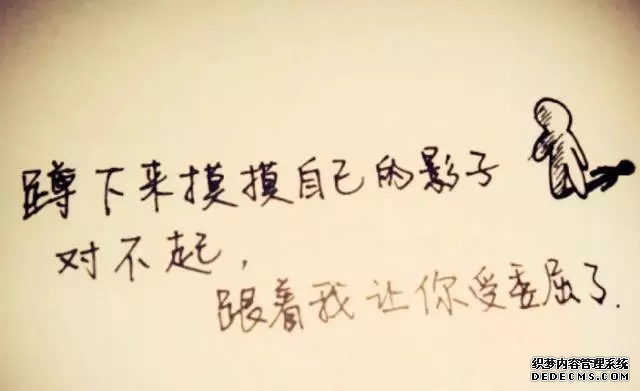 蹲下来摸摸自己的影子
对不起，
跟着我让你受委屈了.
织梦内容管理系统
DEDECMS.COM